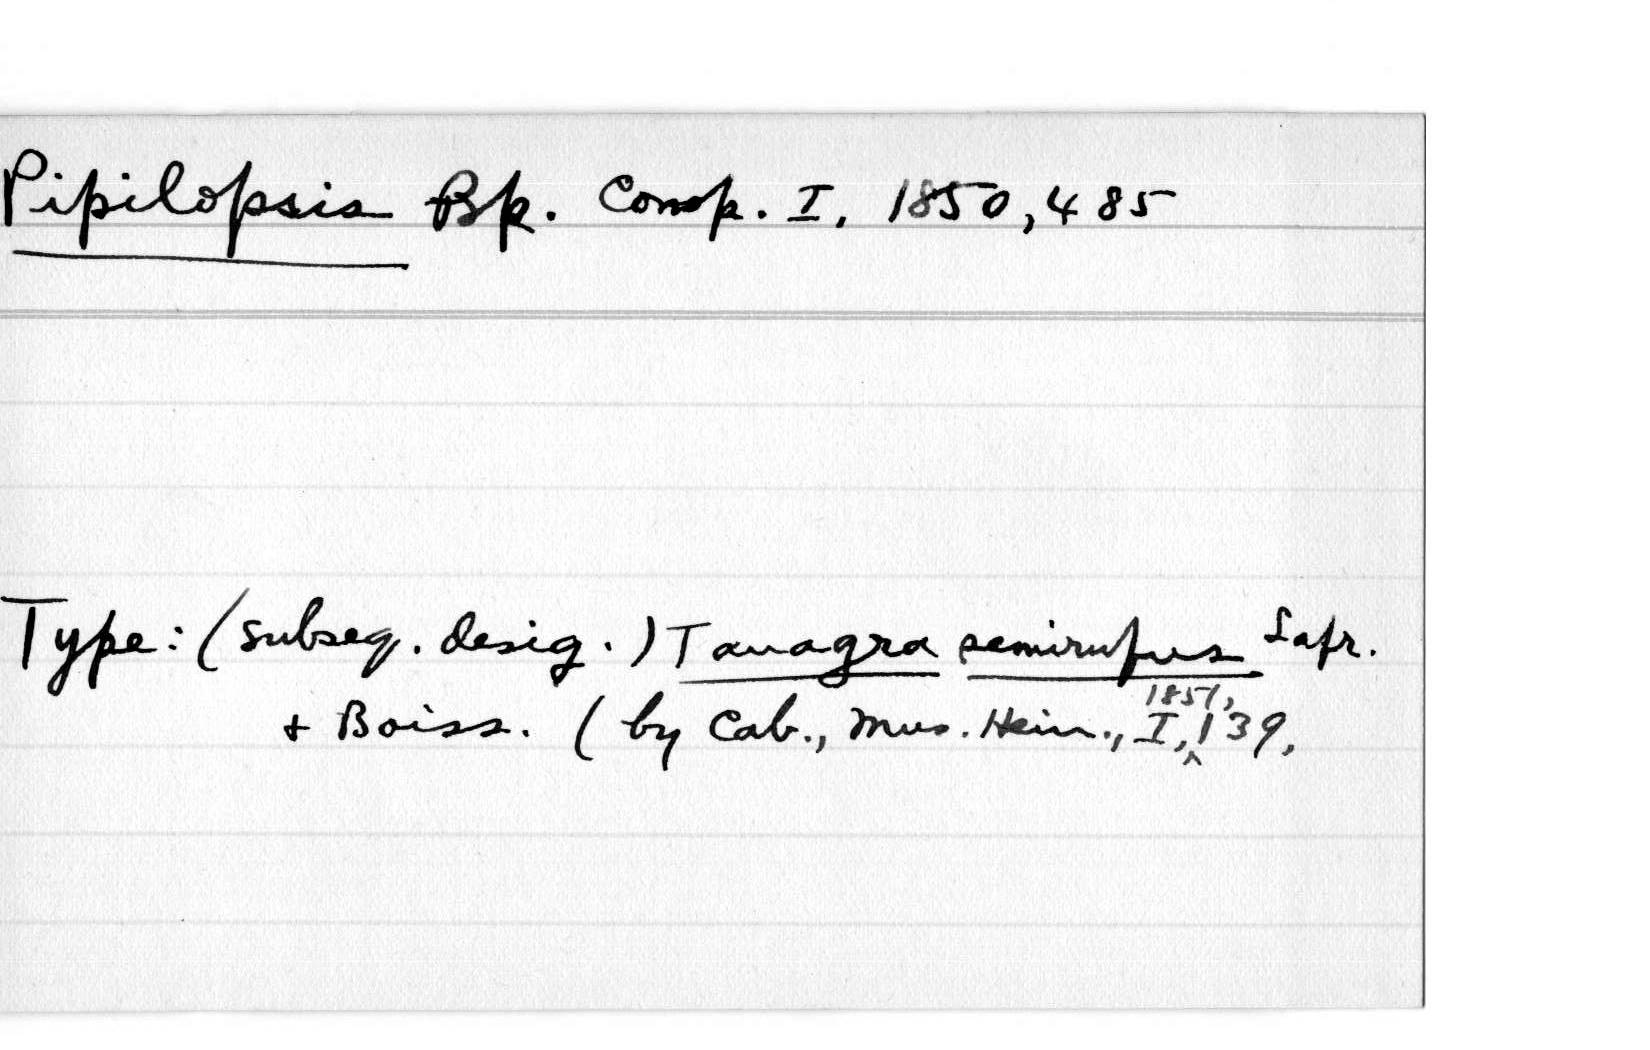 Pipilopsis Bp. Consp. I, 1850, 485
Type: (subseq. desig.) Tanagra semirufus Lafr.
+ Boiss. (by Cab., Mus. Hein., I, 1851, 139,